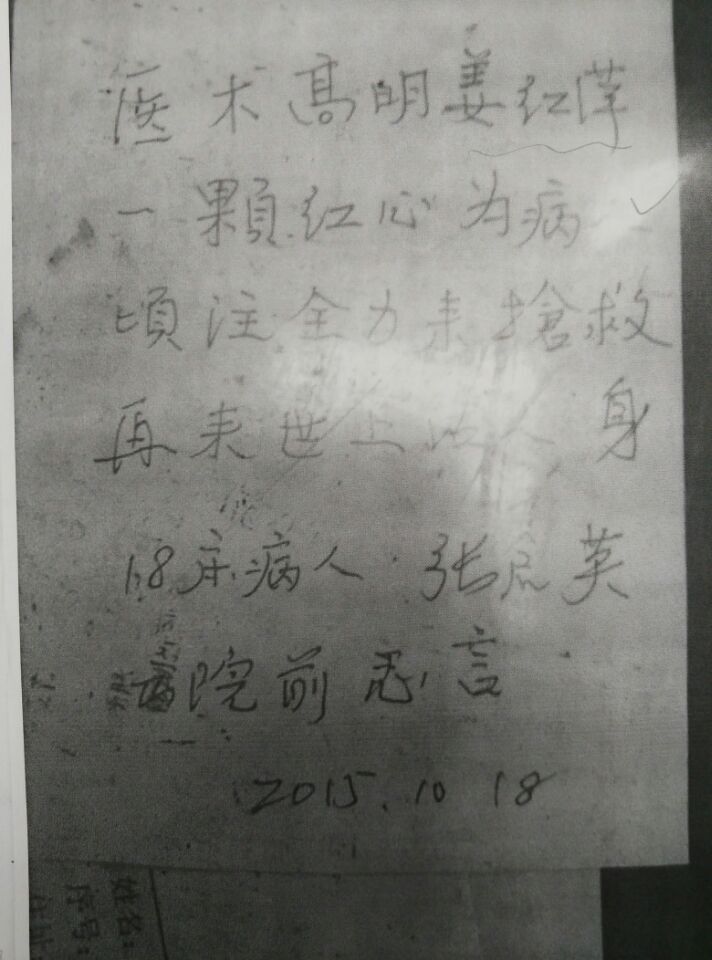 医术高明姜红萍
一颗红心为病
顷注全力来搶救
再来世上 人身
18床病人 张 英
出院前 言
2015.10 18
姓名:
序号: